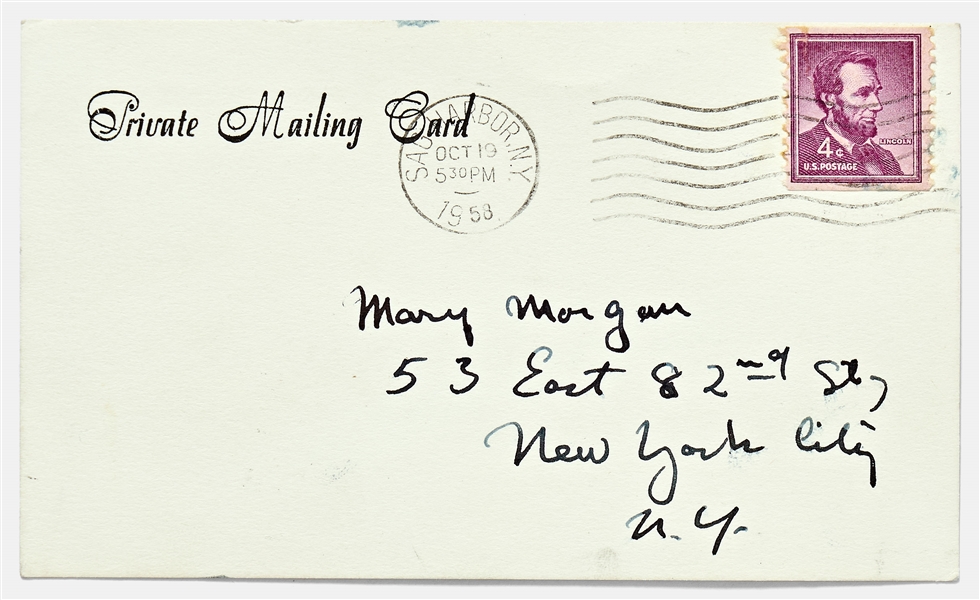 Private Mailing Card
SAG HARBOR, N.Y.
OCT 19
5 30 PM
1958
LINCOLN
4¢
U.S. POSTAGE
Mary Morgan
53 East 82nd St,
New York City
N.Y.